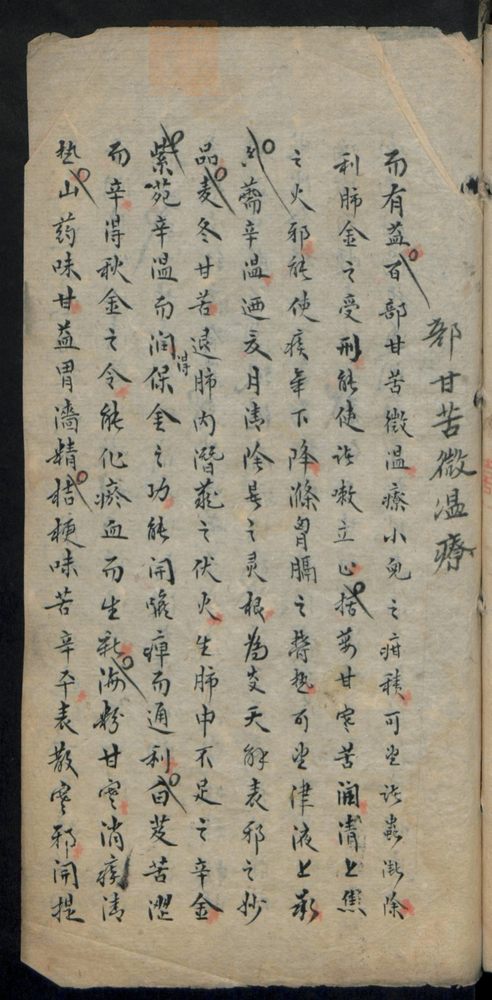 部甘苦微温療
而有益百部甘苦微温療小兒之疳積可坐诸蟲漸除
利肺金之受刑能使诙嗽立止括萎甘寒苦润清上焦
之火邪能使痰氣下降滌胷膈之欝热可坐津液上承
薷辛温迺夏月清陰暑之灵根為炎天解表邪之妙
品麦冬甘苦退肺内潛藏之伏火生肺中不足之辛金
紫菀辛温而润得保金之功能開喉痺而通利白芨苦澀
而辛得秋金之令能化瘀血而生新海粉甘寒消痰清
热山药味甘益胃濇精桔梗味苦辛平表散寒邪開提